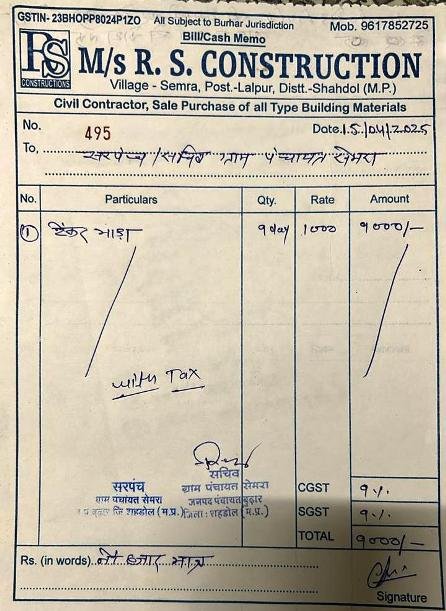 GSTIN- 23BHOPP8024P1ZO All Subject to Burhar Jurisdiction Mob. 9617852725
Bill/Cash Memo
RS CONSTRUCTIONS
M/s R. S. CONSTRUCTION
Village - Semra, Post.-Lalpur, Distt.-Shahdol (M.P.)
Civil Contractor, Sale Purchase of all Type Building Materials
No. 495 Date.15/04/2025
To, सरपंच / सचिव ग्राम पंचायत सेमरा
No. Particulars Qty. Rate Amount
① टैंकर भाड़ा 9 day 1000 9000/-
with Tax
सरपंच
ग्राम पंचायत सेमरा
ज.प. बुढार जि. शहडोल (म.प्र.)
सचिव
ग्राम पंचायत सेमरा
जनपद पंचायत बुढ़ार
जिला: शहडोल (म.प्र.)
CGST 9%
SGST 9%
TOTAL 9000/-
Rs. (in words) नौ हजार मात्र
Signature